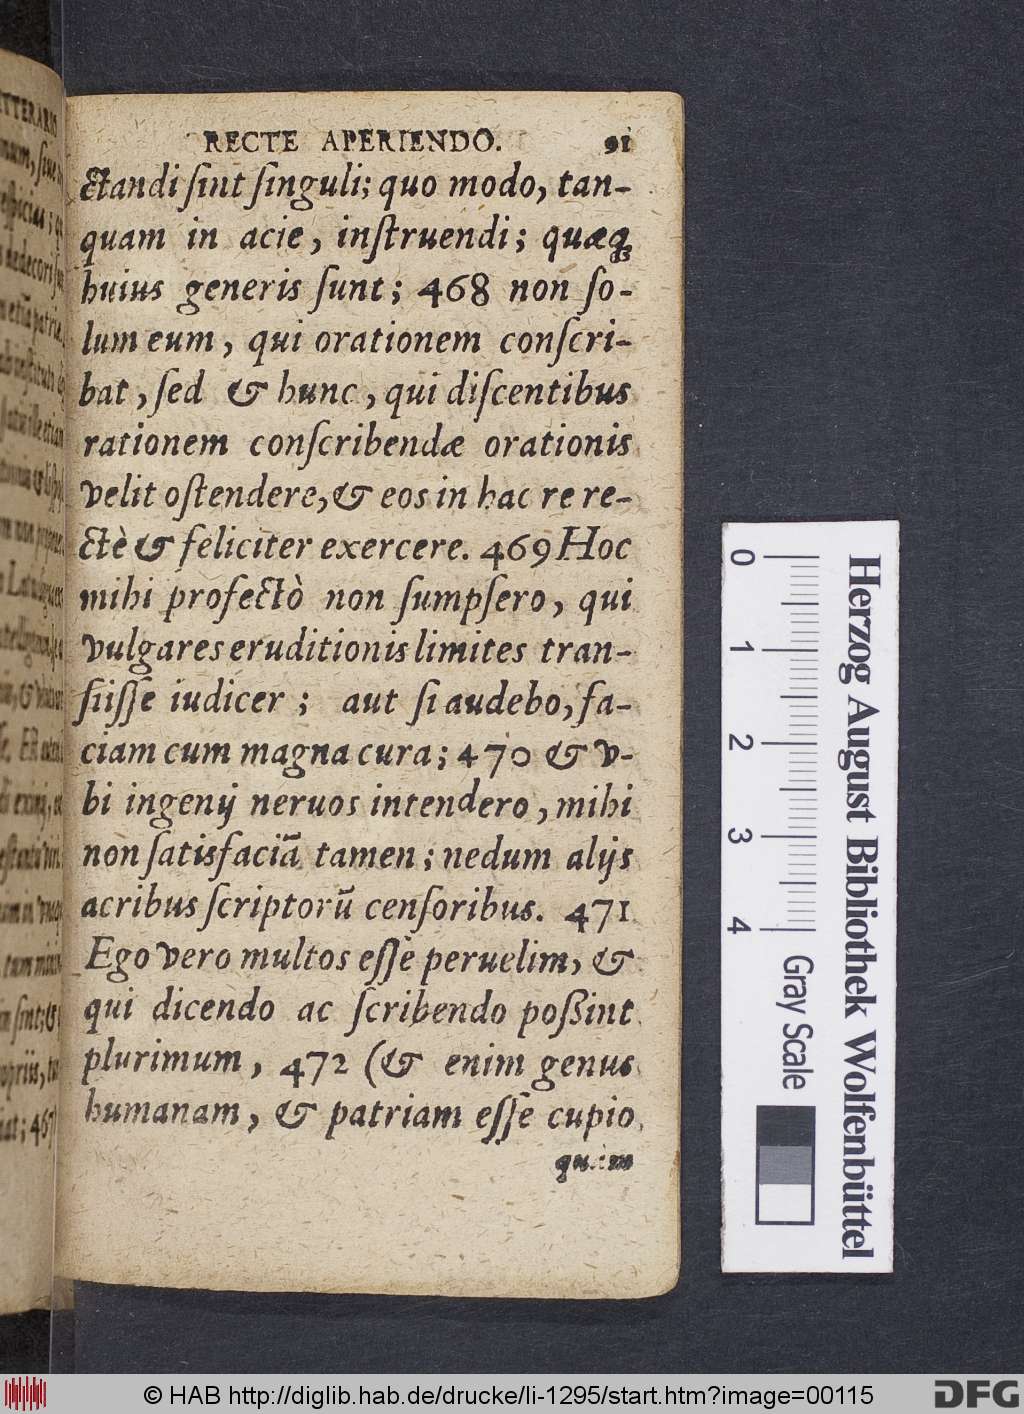 RECTE APERIENDO. 91
ctandi ſint ſinguli; quo modo, tan-
quam in acie, inſtruendi; quæq;
huius generis ſunt; 468 non ſo-
lum eum, qui orationem conſcri-
bat, ſed & hunc, qui diſcentibus
rationem conſcribendæ orationis
velit oſtendere, & eos in hac re re-
ctè & feliciter exercere. 469 Hoc
mihi profectò non ſumpſero, qui
vulgares eruditionis limites tran-
ſiiſſe iudicer; aut ſi audebo, fa-
ciam cum magna cura; 470 & v-
bi ingenij neruos intendero, mihi
non ſatisfaciā tamen; nedum alijs
acribus ſcriptorū cenſoribus. 471
Ego vero multos eſſe peruelim, &
qui dicendo ac ſcribendo poßint
plurimum, 472 (& enim genus
humanam, & patriam eſſe cupio
quam
0 1 2 3 4
Gray Scale
Herzog August Bibliothek Wolfenbüttel
© HAB http://diglib.hab.de/drucke/li-1295/start.htm?image=00115
DFG